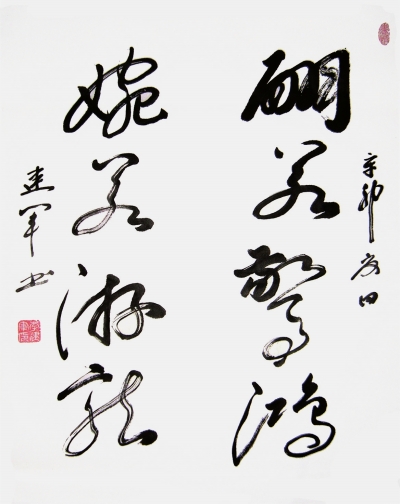 辛卯夏日
翩若驚鴻
婉若游龍
建军书